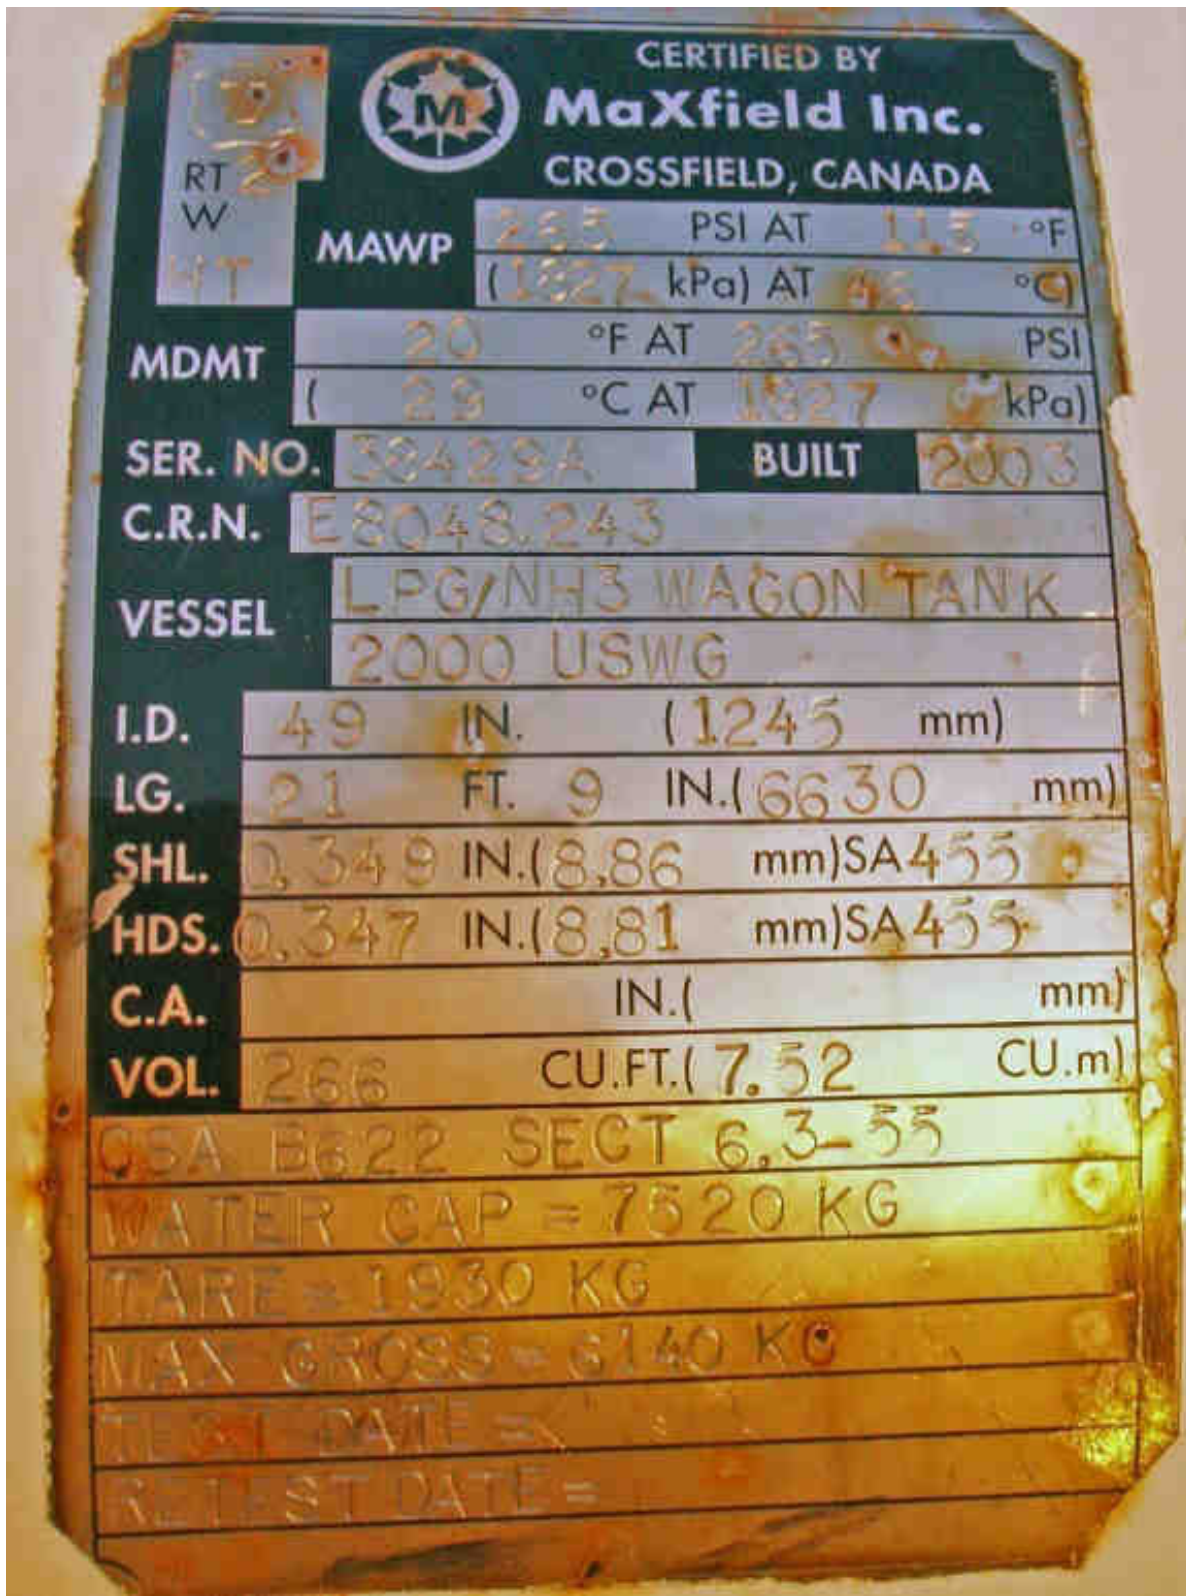 CERTIFIED BY
M
MaXfield Inc.
CROSSFIELD, CANADA
RT 2
W
HT
MAWP 265 PSI AT 115 °F
(1827 kPa) AT 46 °C)
MDMT 20 °F AT 265 PSI
( 29 °C AT 1827 kPa)
SER. NO. 38429A BUILT 2003
C.R.N. E8048.243
VESSEL LPG/NH3 WAGON TANK
2000 USWG
I.D. 49 IN. (1245 mm)
LG. 21 FT. 9 IN.(6630 mm)
SHL. 0.349 IN.(8.86 mm)SA455
HDS. 0.347 IN.(8.81 mm)SA455
C.A. IN.( mm)
VOL. 266 CU.FT.(7.52 CU.m)
CSA B622 SECT 6.3-55
WATER CAP = 7520 KG
TARE = 1930 KG
MAX GROSS = 6140 KG
TEST DATE =
RETEST DATE =